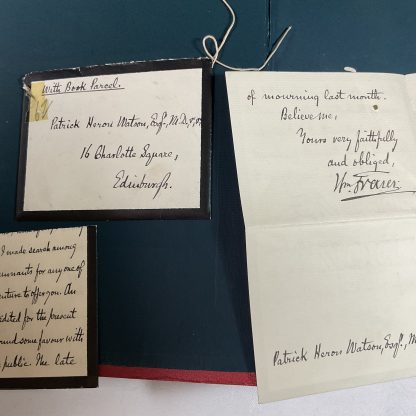 With Book Parcel.
Patrick Heron Watson, Esqr., M.D.,
16 Charlotte Square,
Edinburgh.
of mourning last month.
Believe me,
Yours very faithfully
and obliged,
Wm. Fraser.
Patrick Heron Watson, Esqr., M
I made search among
mnants for any one of
enture to offer you. An
edited for the present
ound some favour with
e public. The late